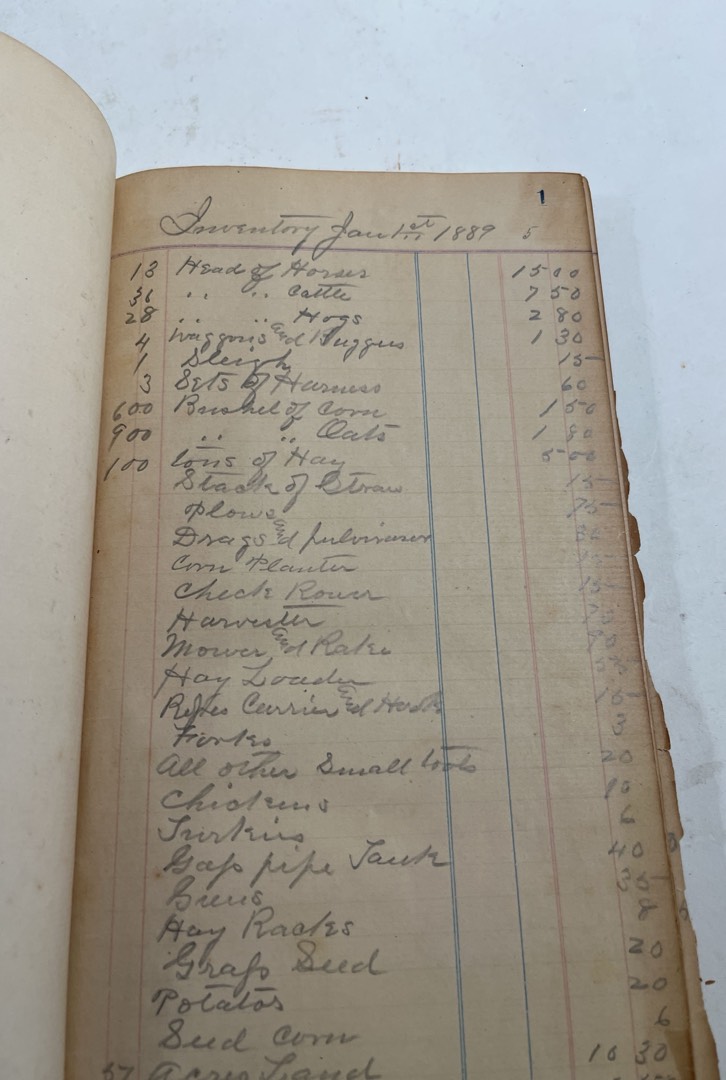 1
Inventory Jan 1st 1889 5
13 Head of Horses 1500
36 " " Cattle 750
28 " " Hogs 280
4 Waggons and Buggus 130
1 Sleigh 15
3 Sets of Harness 60
600 Bushel of Corn 150
900 " " Oats 180
100 tons of Hay 500
Stack of Straw 15
Plows 75
Drags and pulviriser
Corn Planter
Check Rower 15
Harvester
Mower and Rake
Hay Loader
Ropes Carrier and Hook
Forks
All other Small tools 20
Chickens 10
Turkeis 6
Gass pipe Tank 40
Guns 35
Hay Rackes 8
Grass Seed 20
Potatos 20
Seed Corn 6
10 30
57 Acres Land